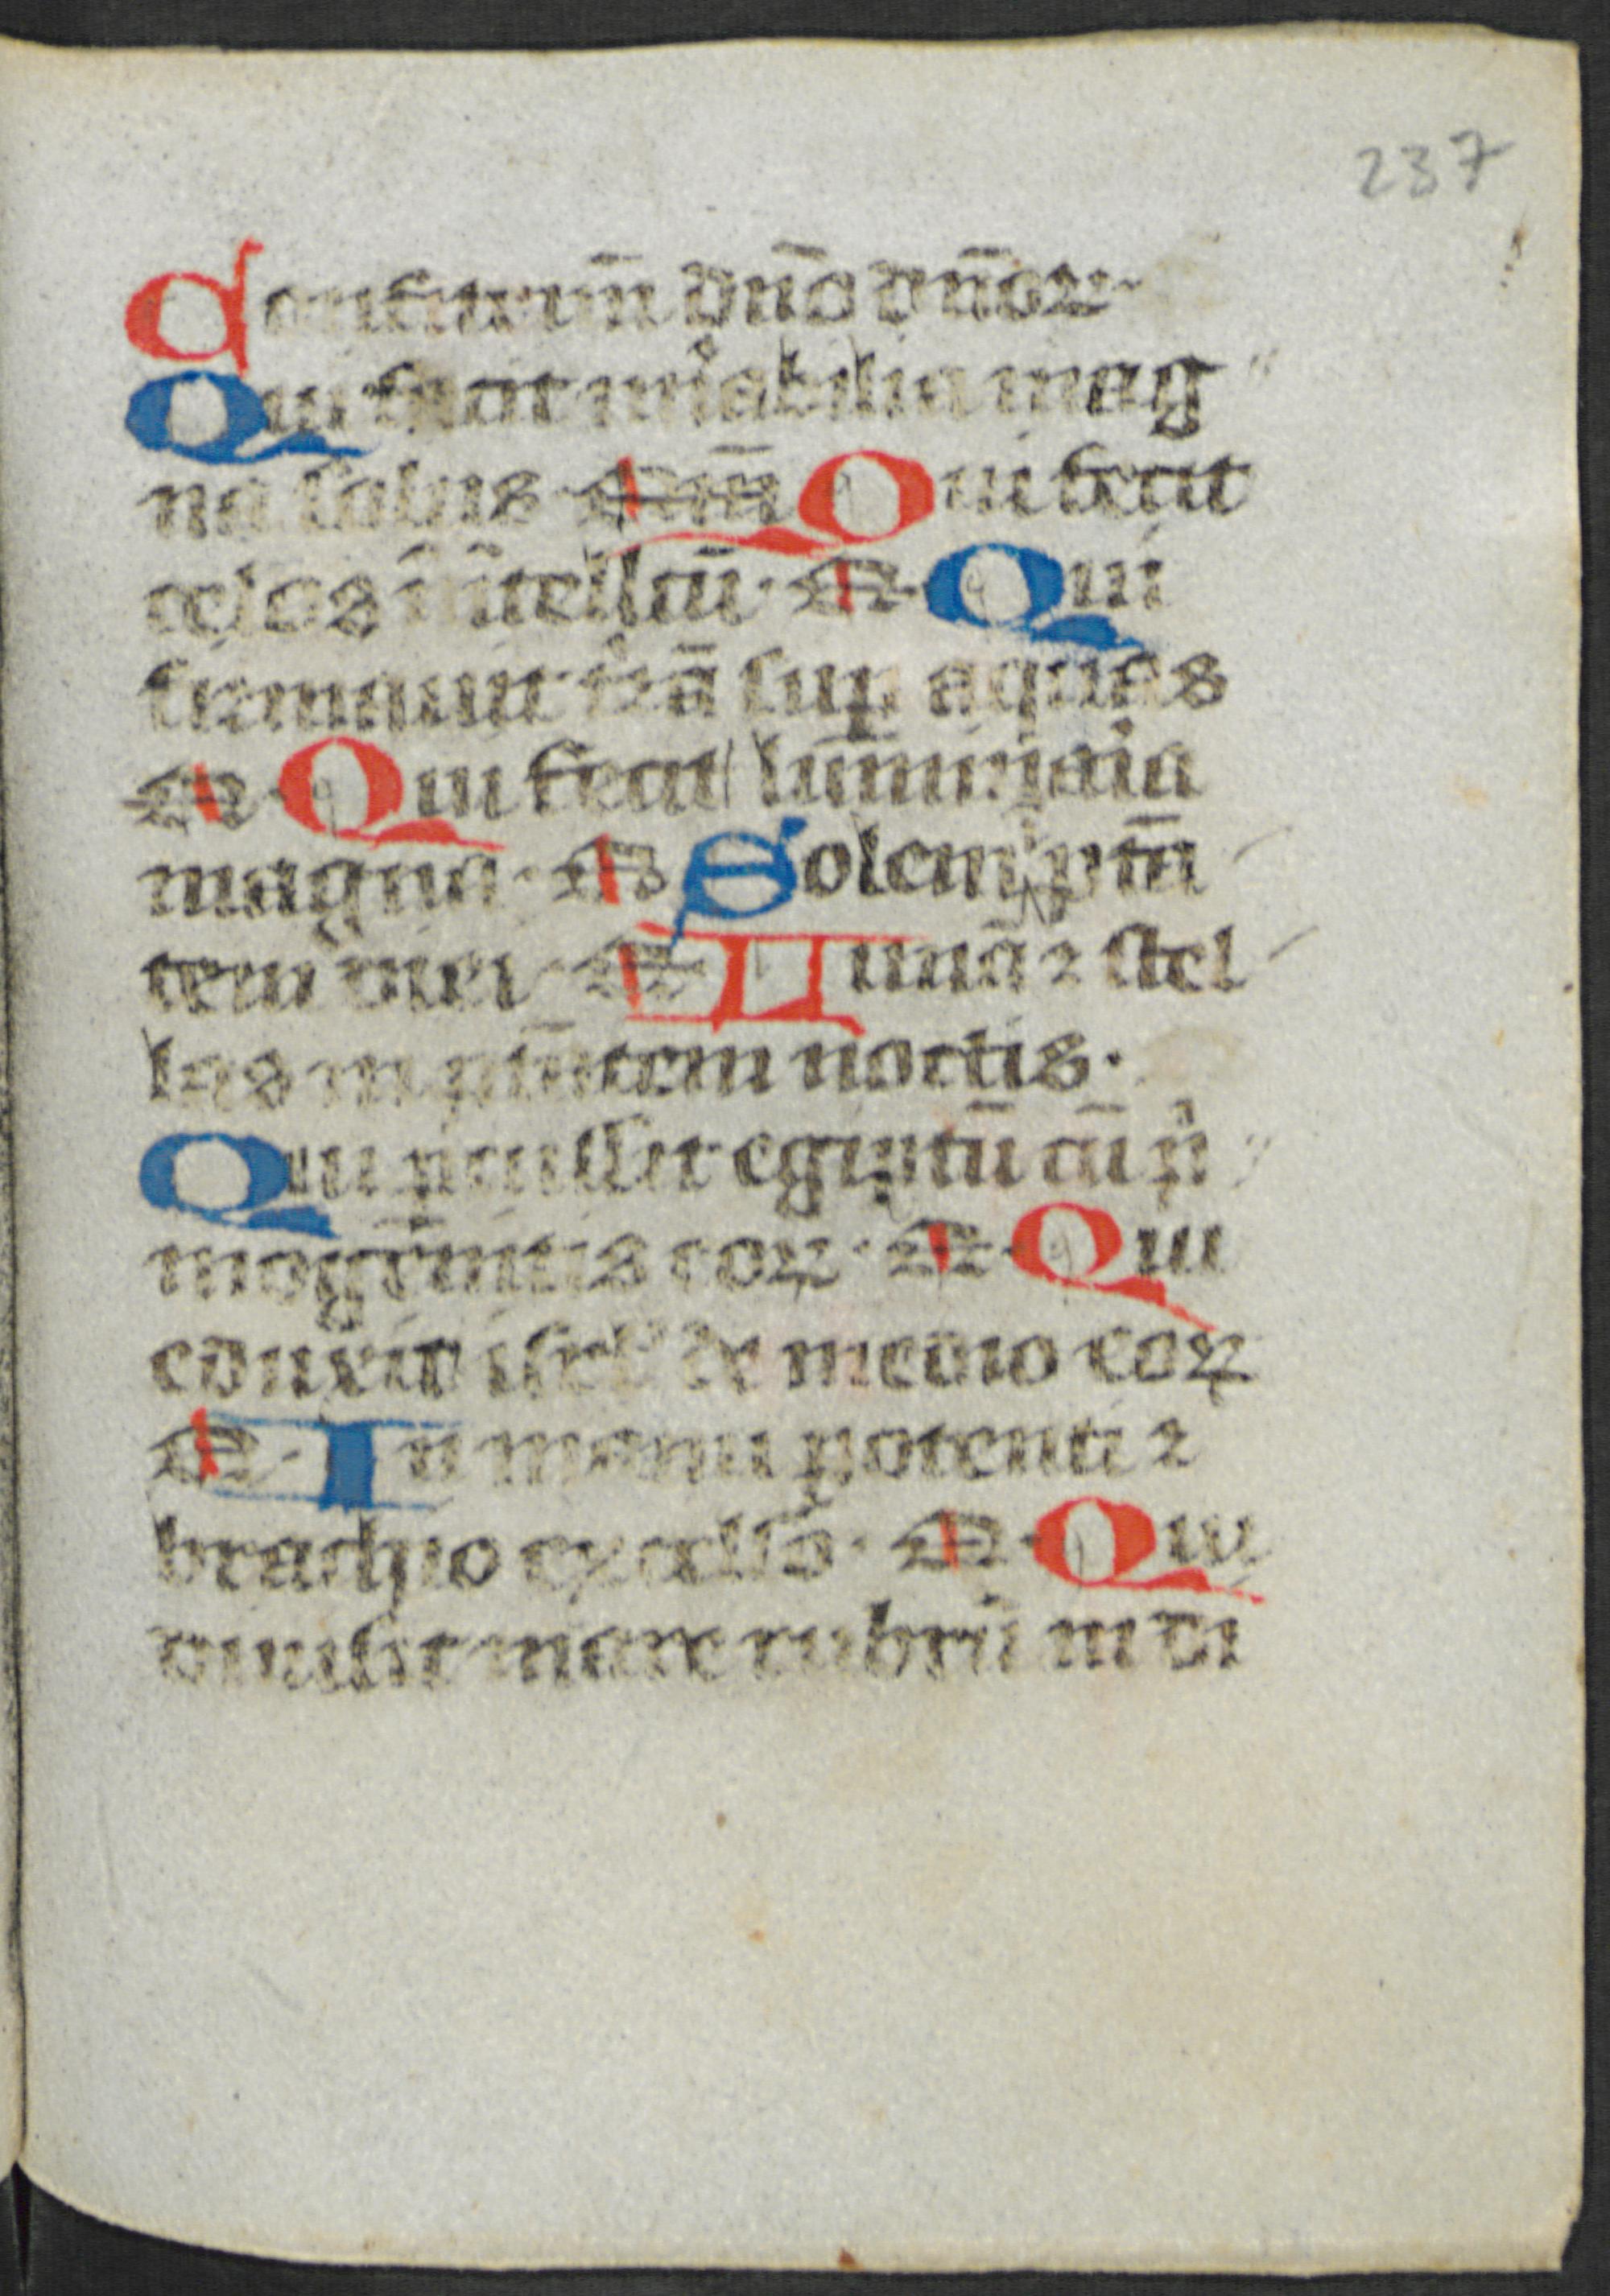 237
Confitemĩ dño dñoꝝ
Qui fecit mͥabilia mag
na solus · Qm̃ Qui fecit
celos ĩ ĩtellcũ · Qm̃ · Qui
firmauit t̾rã suꝑ aquas
Qm̃ · Qui fecit lumĩaria
magna · Qm̃ Solem ĩ ptã
tem diei · Qm̃ Lunã ⁊ stel
las in ptãtem noctis ·
Qui ꝑcussit egiptũ cũ pͥ
mogẽnitis eoꝝ · Qm̃ · Qui
eduxit isrł de medio eoꝝ
Qm̃ · In manu potenti ⁊
brachio excelso · Qm̃ · Qui
diuisit mare rubrũ in di